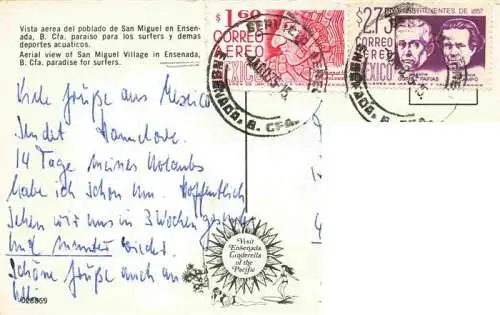 Vista aerea del poblado de San Miguel en Ensen-
ada, B. Cfa. paraiso para los surfers y demas
deportes acuaticos.
Aerial view of San Miguel Village in Ensenada,
B. Cfa. paradise for surfers.
$1.60
CORREO
AEREO
MEXICO
$2.75
CONSTITUYENTES DE 1857
CORREO
AEREO
MEXICO
VALENTIN
GOMEZ FARIAS
SERVICIO
ENSENADA, B. CFA.
ENSENADA, B. CFA.
Viele Grüße aus Mexico
sendet Hannelore.
14 Tage meines Urlaubs
habe ich schon um. Hoffentlich
sehen wir uns in 3 Wochen gesund
und munter wieder.
Schöne Grüße auch an
Visit
Ensenada
Cinderella
of the
Pacific
026869